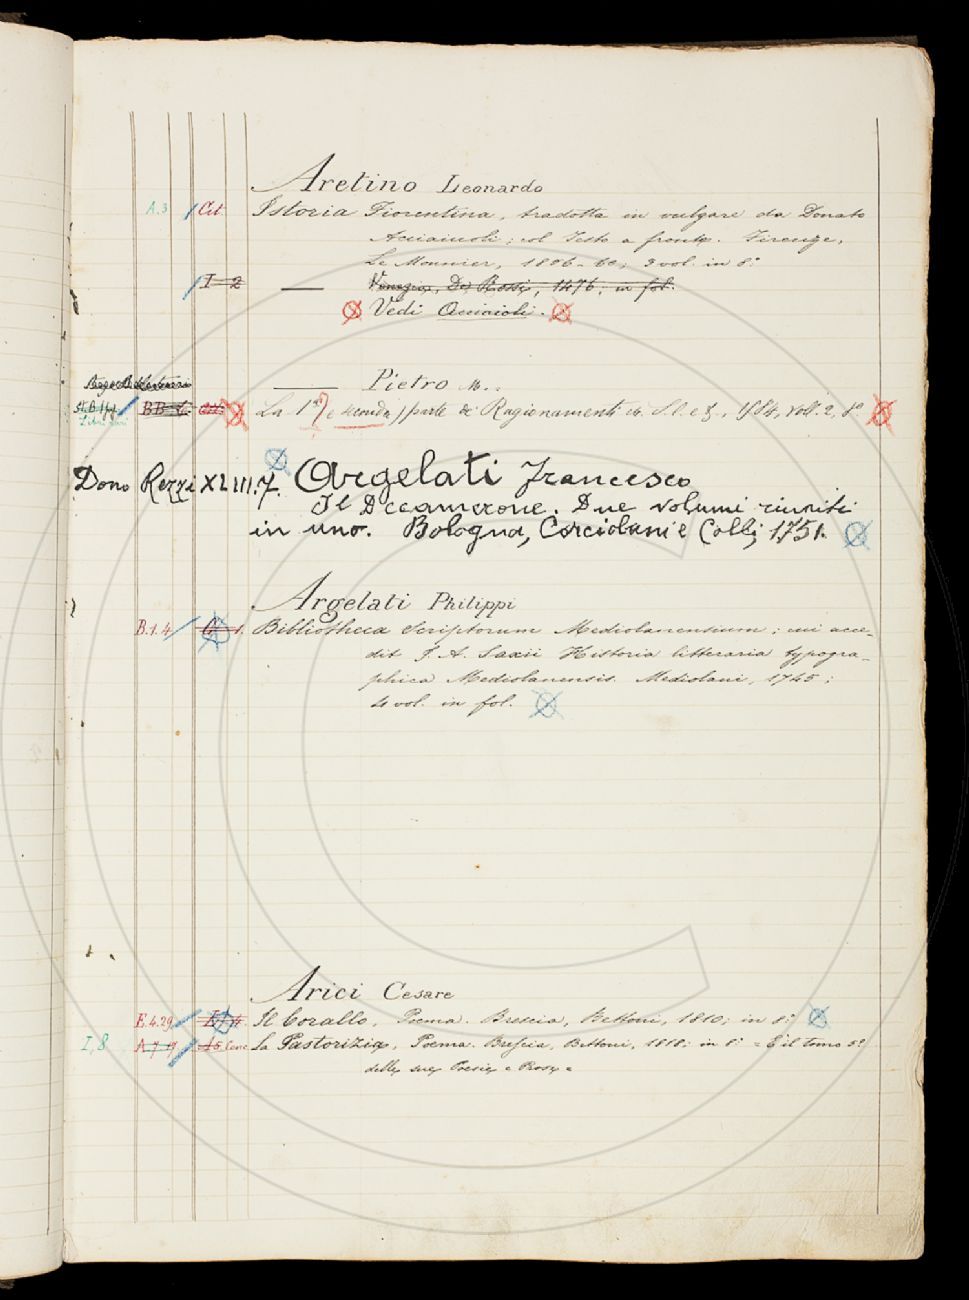 Aretino Leonardo
A.3 Cit. Istoria Fiorentina, tradotta in volgare da Donato
Acciaiuoli; col testo a fronte. Firenze,
Le Monnier, 1856-60; 3 vol. in 8.°
I 2 — Venezia, De Rossi, 1476; in fol.
Vedi Acciaioli.
— Pietro
BB La 1ª e seconda parte de' Ragionamenti S.l.e t., 1584, Voll. 2, 8°
Dono Rezzi XLIII.7. Argelati Francesco
Il Decamerone. Due volumi riuniti
in uno. Bologna, Corciolani e Colli, 1751.
Argelati Philippi
B.1.4 Bibliotheca Scriptorum Mediolanensium; cui acce-
dit J. A. Saxii Historia litteraria typogra-
phica Mediolanensis. Mediolani, 1745;
4 vol. in fol.
Arici Cesare
E.4.29 Il Corallo, Poema. Brescia, Bettoni, 1810; in 8.°
I,8 La Pastorizia, Poema. Brescia, Bettoni, 1818; in 8.° = È il tomo 5.°
delle sue Poesie e Prose =